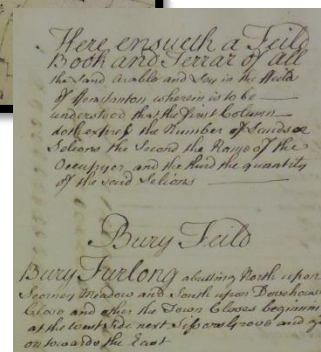 Here ensueth a Feild
Book and Terrar of all
the Land Arable and Ley in the Feilds
of Hemstanton wherein is to be
understood that the first Column
doth express the Number of Lands or
Selions the Second the Name of the
Occupyer and the third the quantity
of the said Selions
Bury Feild
Bury Furlong abutting North upon
Meadow and South upon Dovehouse
Close and other the Town Closes beginning
at the west Side next Grove and
on towards the East